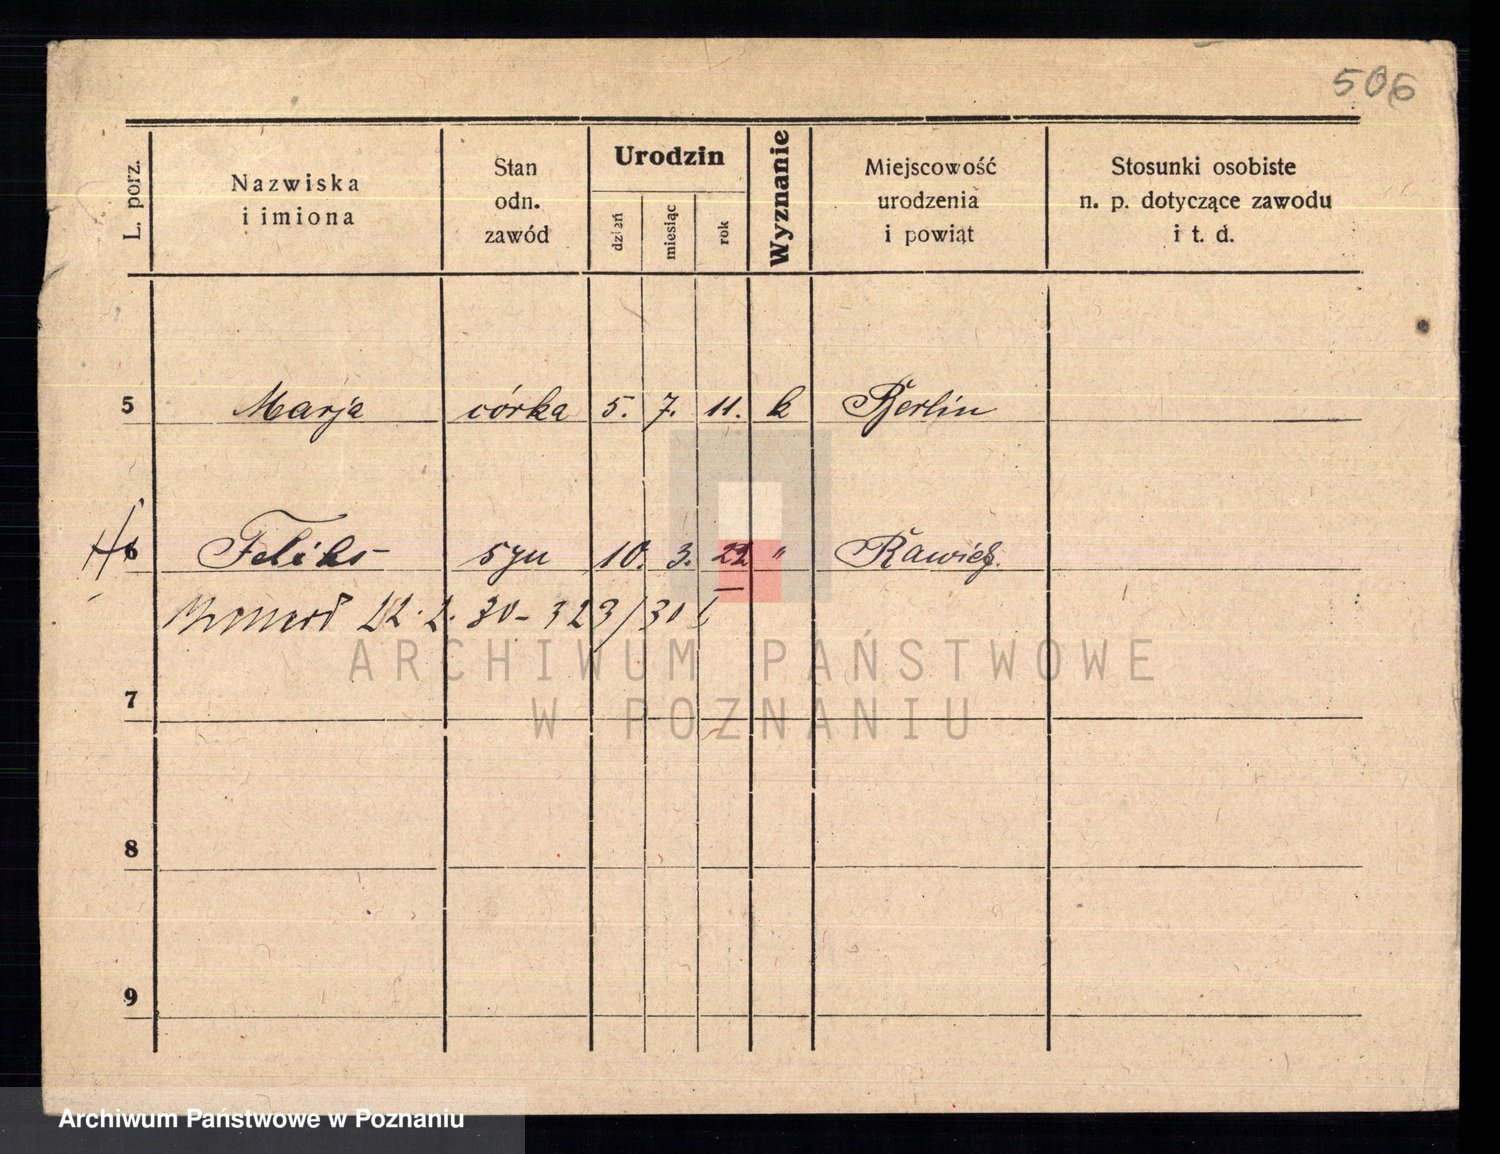 506
L. porz.
Nazwiska
i imiona
Stan
odn.
zawód
Urodzin
dzień
miesiąc
rok
Wyznanie
Miejscowość
urodzenia
i powiat
Stosunki osobiste
n. p. dotyczące zawodu
i t. d.
5 Marja córka 5. 7. 11. k Berlin
6 Feliks syn 10. 3. 22 " Rawicz.
22. 2. 30 - 323/30
ARCHIWUM PAŃSTWOWE
W POZNANIU
7
8
9
Archiwum Państwowe w Poznaniu